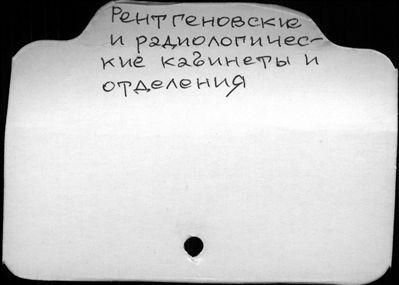 Рентгеновские
и радиологичес-
кие кабинеты и
отделения